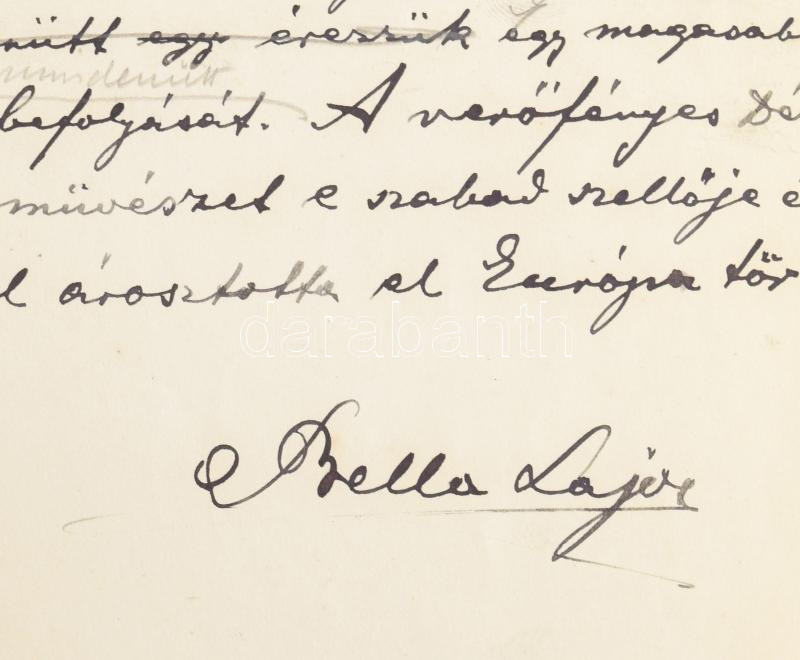 nütt egy érezzük egy magasab
mindenütt
befolyását. A verőfényes Dé
művészet e szabad szellője é
l árosztotta el Európa tör
darabanth
Bella Lajos